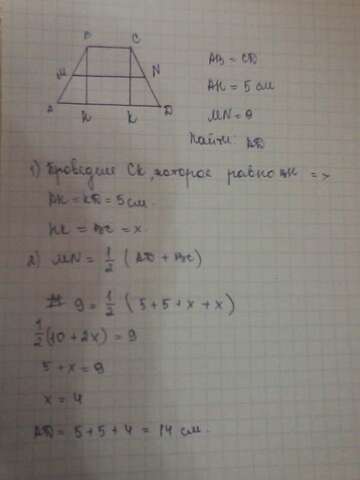 B C
AB = CD
M N
AH = 5 см
A H K D
MN = 9
Найти: AD
1) Проведем CK, которое равно BH =>
AH = KD = 5 см.
HK = BC = x
2) MN = 1/2 (AD + BC)
9 = 1/2 (5 + 5 + x + x)
1/2 (10 + 2x) = 9
5 + x = 9
x = 4
AD = 5 + 5 + 4 = 14 см.